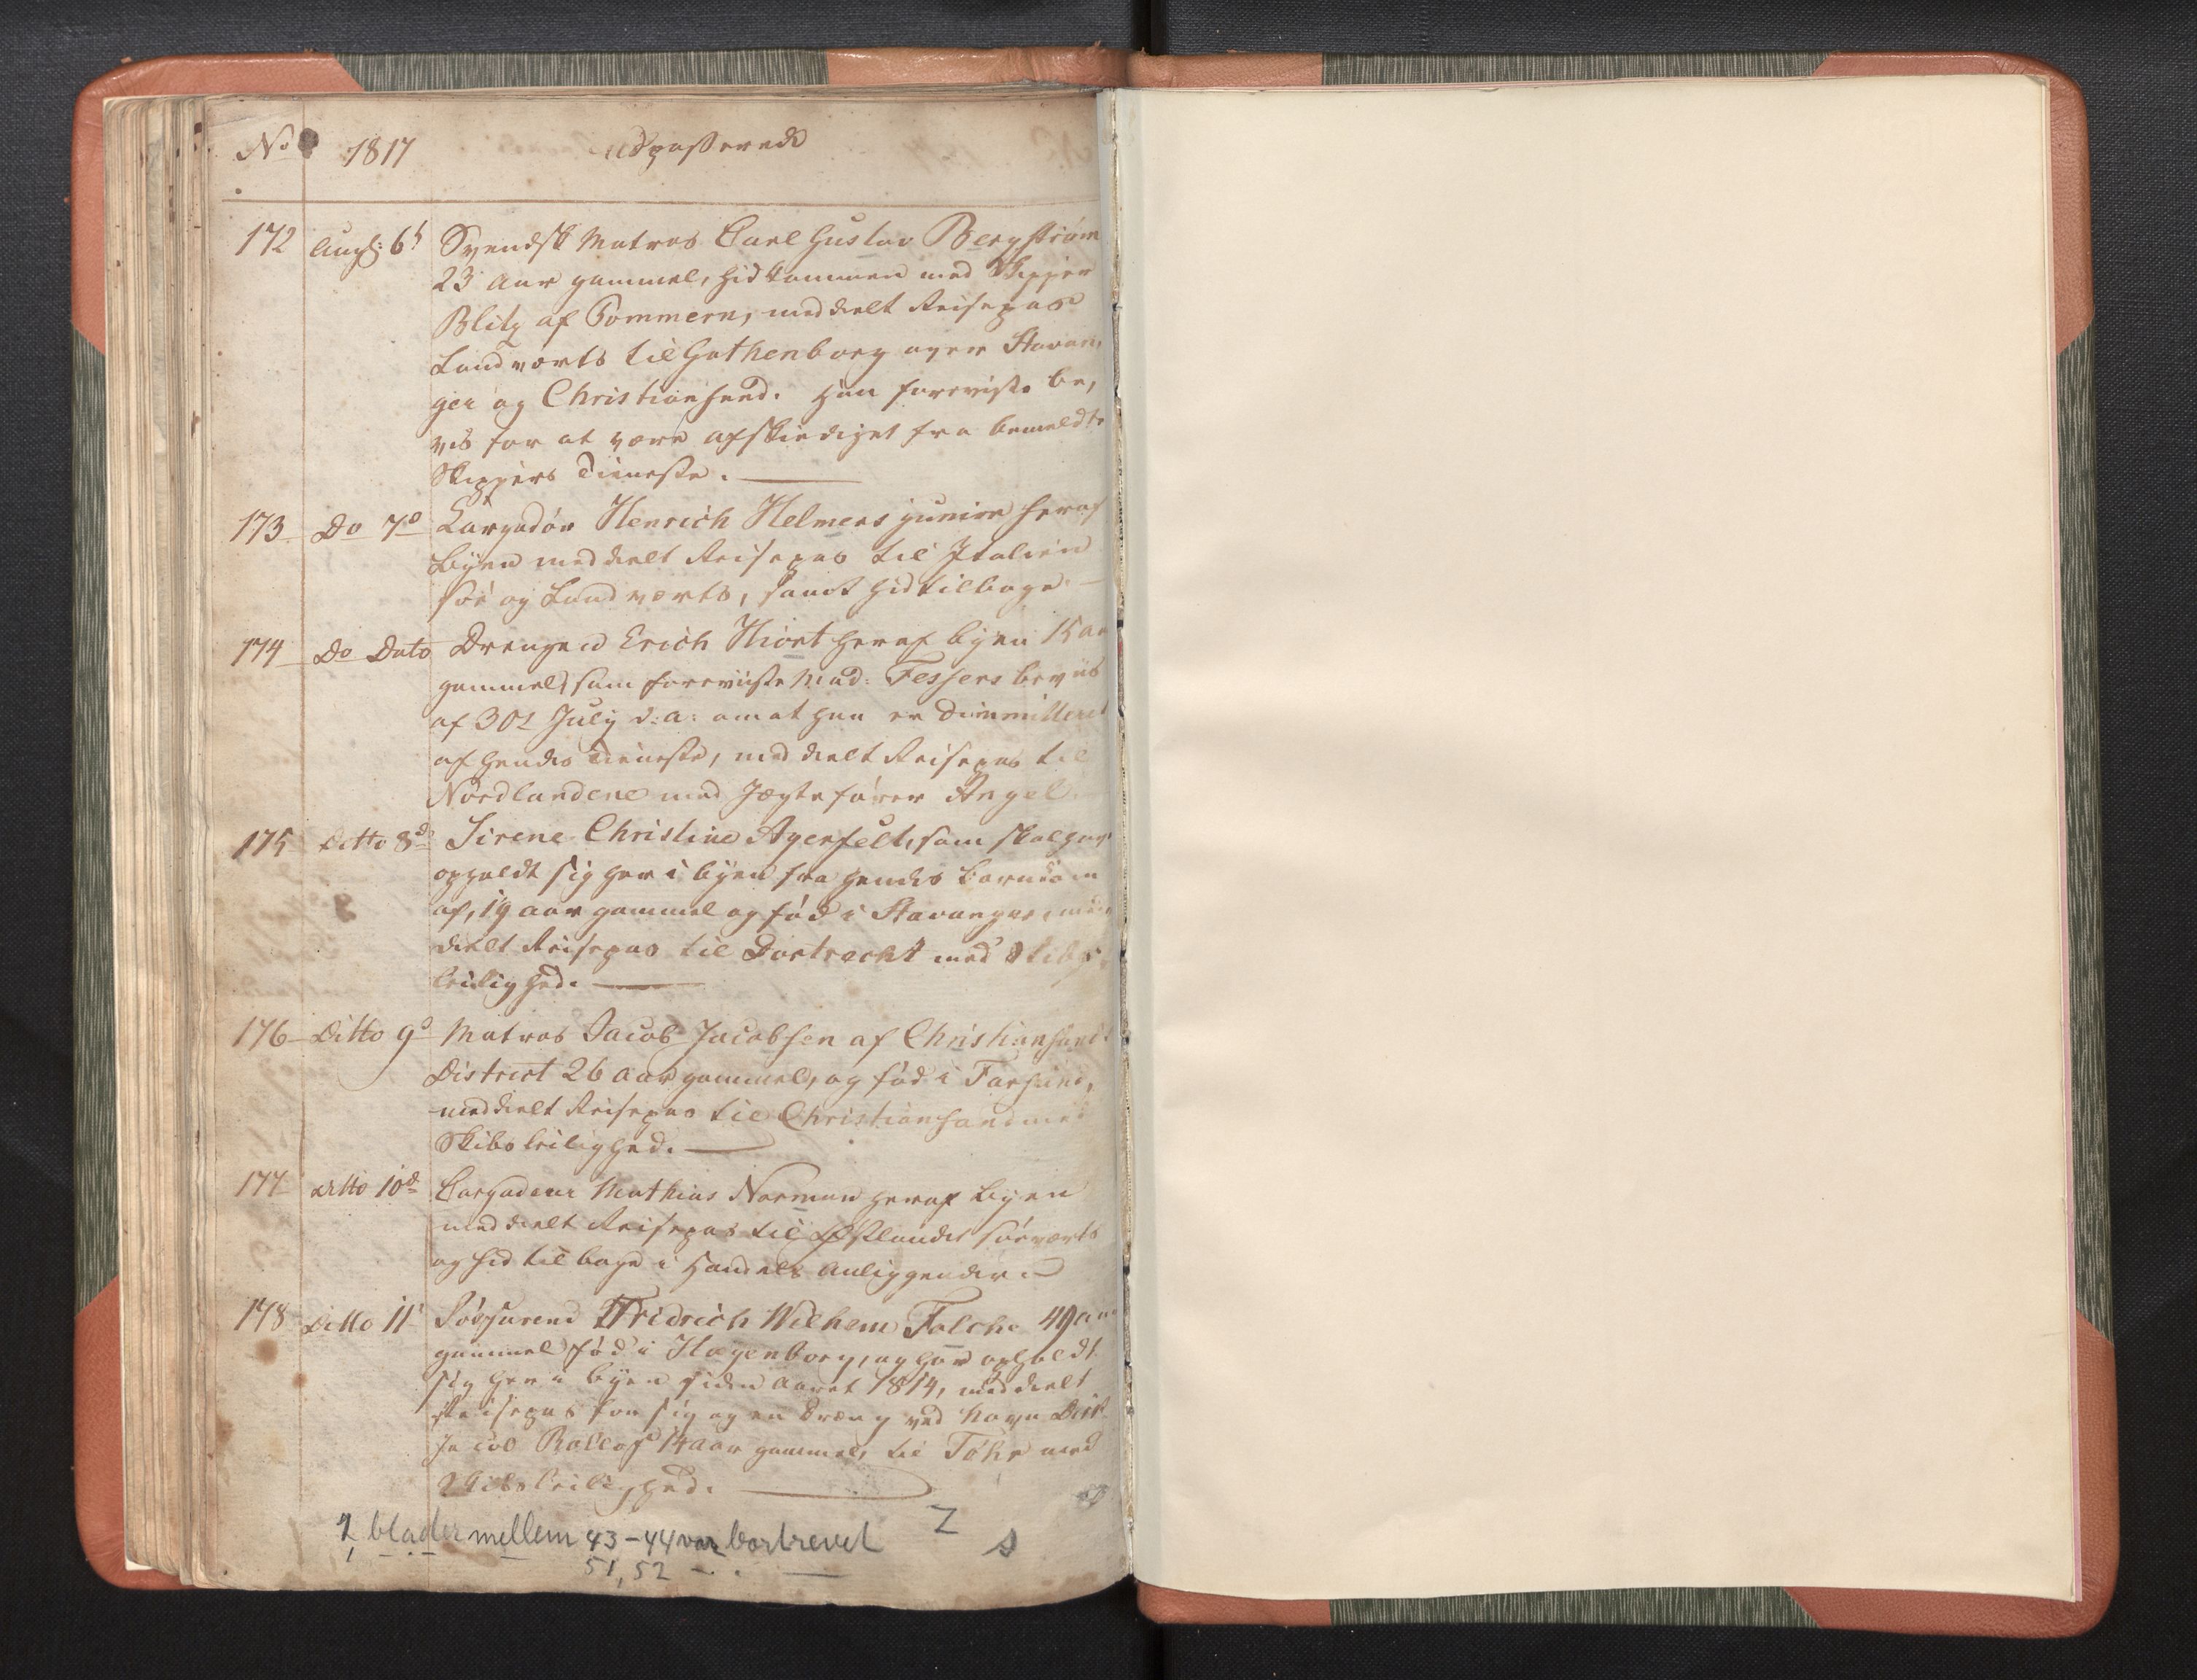 No 1817 udpasserede
172 Augst: 6t Svendsk Matros Carl Gustav Bergstrøm
23 Aar gammel, hidkommen med Skipper
Blitz af Pommern, meddeelt Reisepas
Landværts til Gothenborg over Stavan,
ger og Christiansand. Han foreviste be,
vis for at være afskediget fra bemeldte
Skippers Tieneste.
173 Do 7de Henrich Helmers junior heraf
Byen meddeelt Reisepas til Italien
søe og Landværts, samt hid tilbage
174 Do Dato Drengen Erich Hiort heraf byen 15 aar
gammel, som foreviiste Mad: Fessers beviis
af 30t July d: a: om at han er dimmitteret
af hendes Tieneste, meddeelt Reisepas til
Nordlandene med Jægtefører Angel
175 Ditto 8de Sirene Christine Agerfelt, som skal have
opholdt sig her i byen fra hendes Barndom
af, 19 aar gammel og fød i Stavanger, med
deelt Reisepas til Dortrecht med Skibs
leilighed.
176 Ditto 9de Matros Jacob Jacobsen af Christiansands
District 26 aar gammel, og fød i Farsund,
meddeelt Reisepas til Christiansand med
Skibsleilighed.
177 ditto 10de Cargadeur Mathias Norman heraf Byen
meddeelt Reisepas til Østlandet søeværts
og hid tilbage i Handels Anliggender
178 Ditto 11t Søefarende Fridrich Wilhem Falch 49 aar
gammel fød i Hagenborg, og har opholdt
sig her i byen siden Aaret 1814, meddeelt
Reisepas for sig og en Dreng ved Navn
14 aar gammel, til Föhr med
Skibsleilighed.
2 blader mellem 43-44 var bortrevet
51, 52